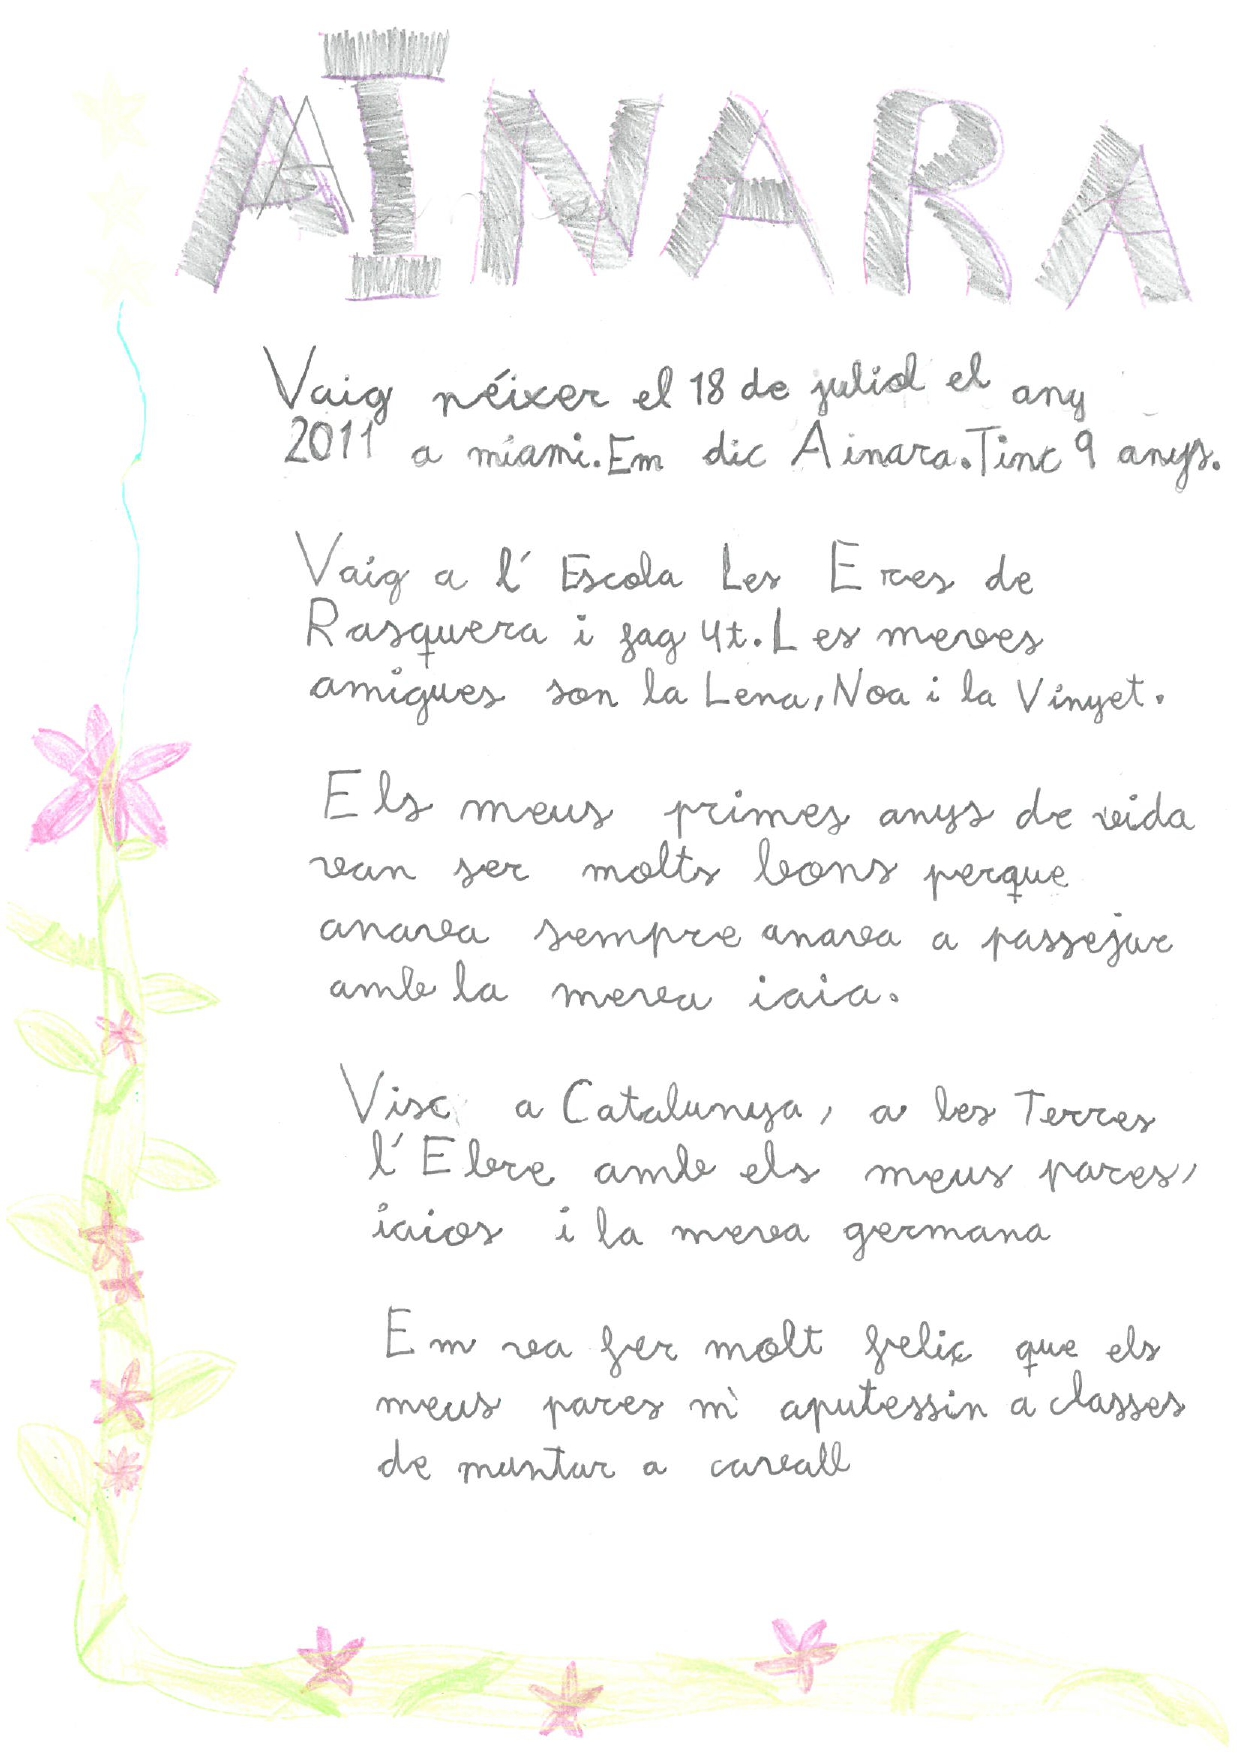 AINARA
Vaig néixer el 18 de juliol el any
2011 a miami. Em dic Ainara. Tinc 9 anys.
Vaig a l' Escola Les Eres de
Rasquera i fag 4t. Les meves
amigues son la Lena, Noa i la Vinyet.
Els meus primes anys de vida
van ser molts bons perque
anava sempre anava a passejar
amb la meva iaia.
Visc a Catalunya, a les Terres
l'Ebre amb els meus pares,
iaios i la meva germana
Em va fer molt feliç que els
meus pares m' aputessin a classes
de muntar a cavall